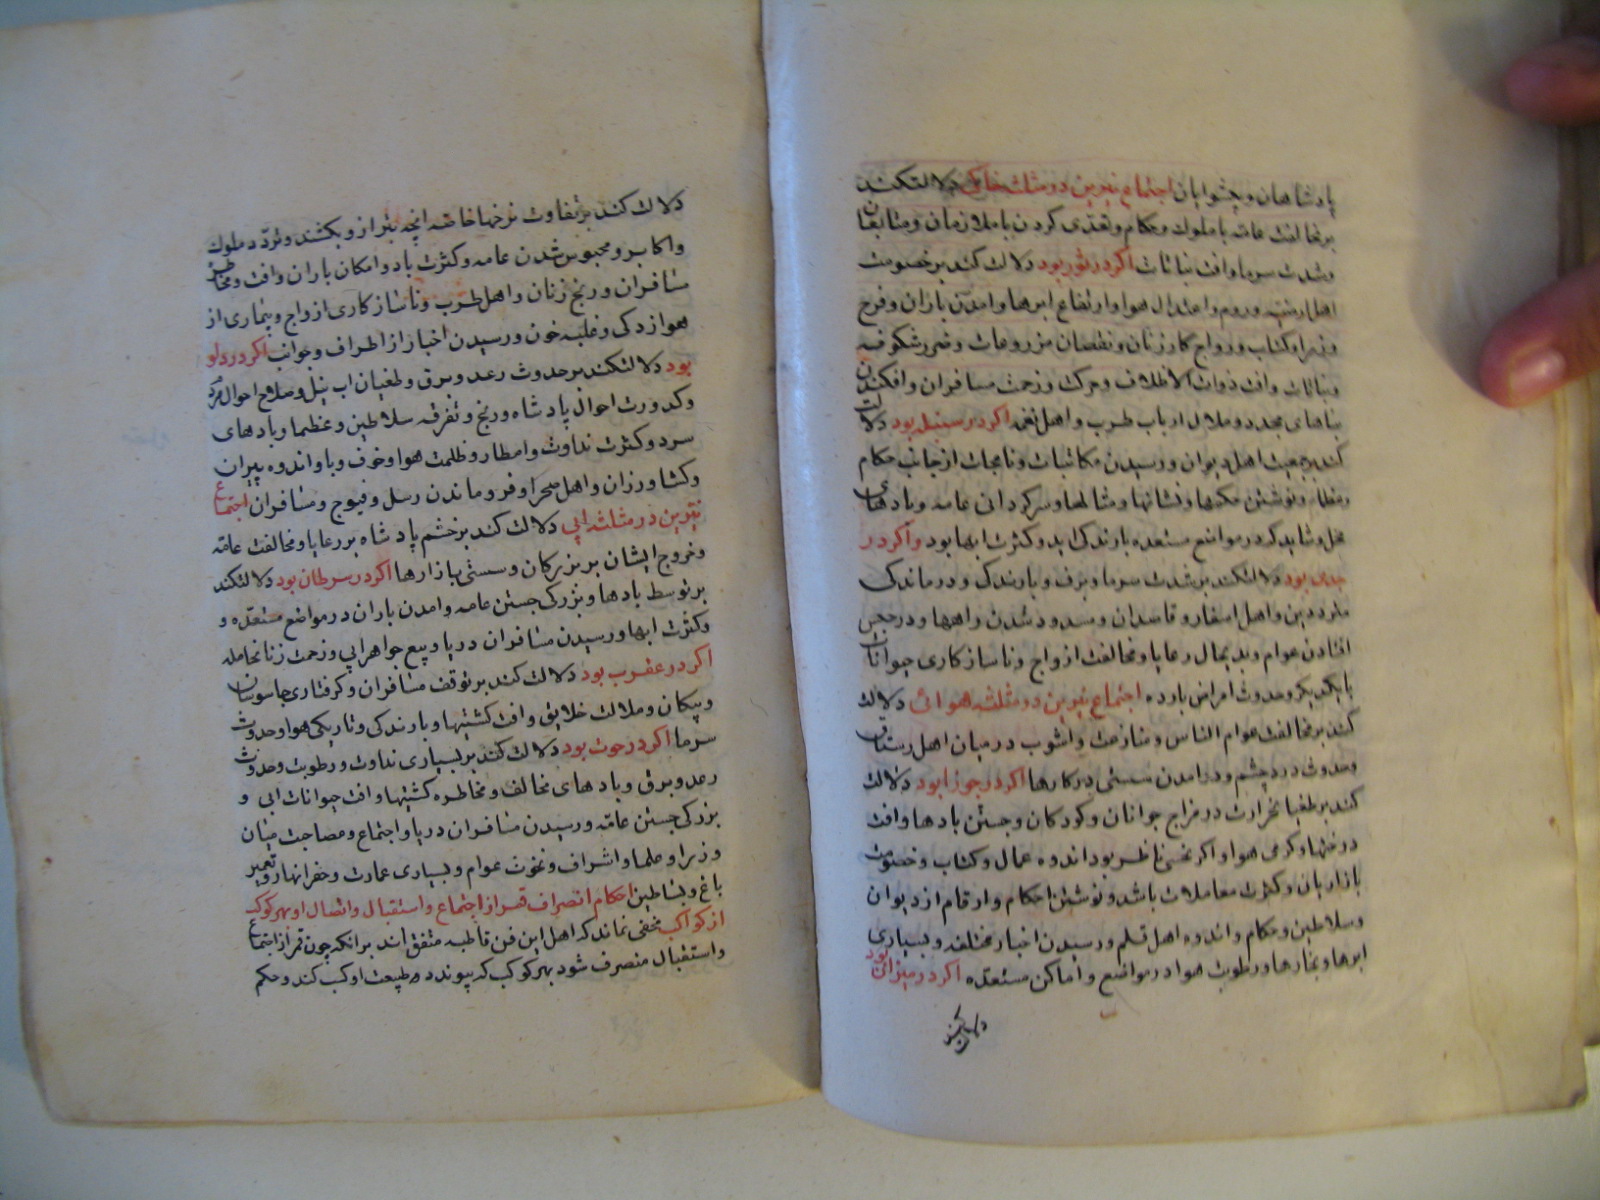 پادشاهان و پیشوایان اجتماع نیرین در مثلثه خاکی دلالت کند
بر مخالفت عامه با ملوک و حکام و تعدی کردن با ملازمان و متابعان
و شدت سرما و افت نباتات اکر در ثور بود دلالت کند بر خصومت
اهل ارمنیه و روم و اعتدال هوا و ارتفاع ابرها و امدن باران و فرح
وزرا و کتاب و رواج کار زنان و نقصان مزروعات و ضرر شکوفه
و نباتات و افت ذوات الاظلاف و حرکت و زحمت مسافران و افکندن
بناهای مجدد و ملال ارباب طرب و اهل نغمه اکر در سنبله بود دلالت
کند بر جمعیت اهل دیوان و رسیدن مکاتبات و نامجات از جانب حکام
و نوشتن حکمها و نشانها و مثالها و سرکردانی عامه و بادهای
و شاید که در مواضع مستعده بارندکی اید و کثرت ابها بود و اکر در
جدی بود دلالت کند بر شدت سرما و برف و بارندکی و درماندکی
مترددین و اهل اسفار و قاصدان و مسدود شدن راهها و در حبس
افتادن عوام و بدیمال رعایا و مخالفت ازواج و ناسازکاری حیوانات
با یکدیکر و حدوث امراض بارده اجتماع نیرین در مثلثه هوائی دلالت
کند بر مخالفت عوام الناس و منازعت و اشوب در میان اهل رستاق
و حدوث درد چشم و در امدن سستی در کارها اکر در جوزا بود دلالت
کند بر طغیا نحرارت در مزاج جوانان و کودکان و جستن بادها و افت
درختها و کرمی هوا و اکر نحسی ناظر بود اندوه عمال و کتاب و خصومت
بازاریان و کثرت معاملات باشد و نوشتن احکام و ارقام از دیوان
و سلاطین و حکام و اندوه اهل قلم و رسیدن اخبار مختلفه و بسیاری
ابرها و بخارها و رطوبت هوا در مواضع و اماکن مستعده اکر در میزان بود
دلالت کند
دلالت کند بر تفاوت نرخها خاصه انچه بترازو بکشند و تردد ملوک
و اکابر و محبوس شدن عامه و کثرت باد و امکان باران و افت و مخاطره
مسافران و رنج زنان و اهل طرب و ناسازکاری ازواج و بیماری از
هوازدکی و غلبه خون و رسیدن اخبار از اطراف و جوانب اکر در دلو
بود دلالت کند بر حدوث رعد و برق و طغیان اب نیل و صلاح احوال مردم
و کدورت احوال پادشاه و رنج و تفرقه سلاطین و عظما و بادهای
سرد و کثرت نداوت و امطار و ظلمت هوا و خوف و با و اندوه پیران
و کشاورزان و اهل صحرا و فرو ماندن رسل و فیوج و مسافران اجتماع
نیرین در مثلثه ابی دلالت کند بر خشم پادشاه بر رعایا و مخالفت عامه
و خروج ایشان بر بزرکان و سستی بازارها اکر در سرطان بود دلالت کند
بر توسط بادها و بزرکی جستن عامه و امدن باران در مواضع مستعده و
و کثرت ابها و رسیدن مسافران دریا و بیع جواهر ابی و زحمت زنانحامله
اکر در عقرب بود دلالت کند بر توقف مسافران و کرفتاری جاسوسان
و پیکان و ملالت خلایق و افت کشتیها و بارندکی و تاریکی هوا و حدوث
سرما اکر در حوت بود دلالت کند بر بسیاری نداوت و رطوبت و حدوث
رعد و برق و بادهای مخالف و مخاطره کشتیها و افت حیوانات ابی و
بزرکی جستن عامه و رسیدن مسافران دریا و اجتماع و مصاحبت میان
وزرا و علما و اشراف و نخوت عوام و بسیاری عمارت و حفر انهار و تعمیر
باغ و بساطین احکام انصراف قمر از اجتماع و استقبال و اتصال او بهر کوکب
از کواکب مخفی نماند که اهل این فن قاطبه متفق اند بر انکه چون قمر از اجتماع
و استقبال منصرف شود بهر کوکب که پیوندد طبیعت او کسب کند و حکم